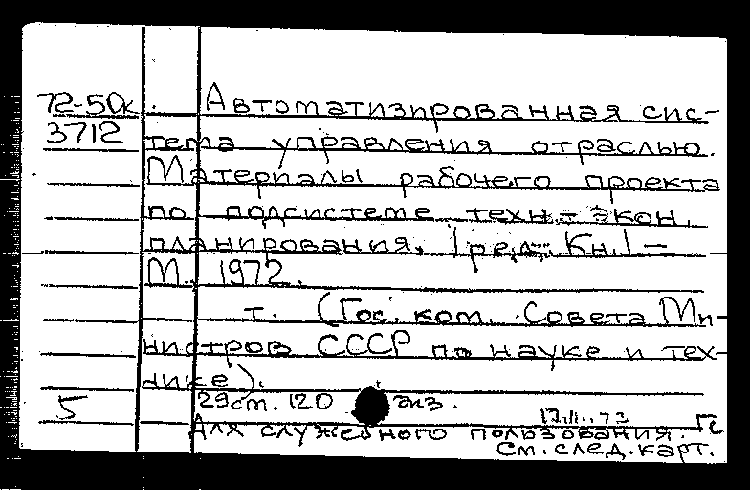 72-5Dк. Автоматизированная сис-
3712 тема управления отраслью.
Материалы рабочего проекта
по подсистеме техн.-экон.
планирования. 1 ред. Кн. 1 –
М., 1972.
т. (Гос. ком. Совета Ми-
нистров СССР по науке и тех-
нике).
5 29 ст. 120 экз.
Для служебного пользования.
См. след. карт.